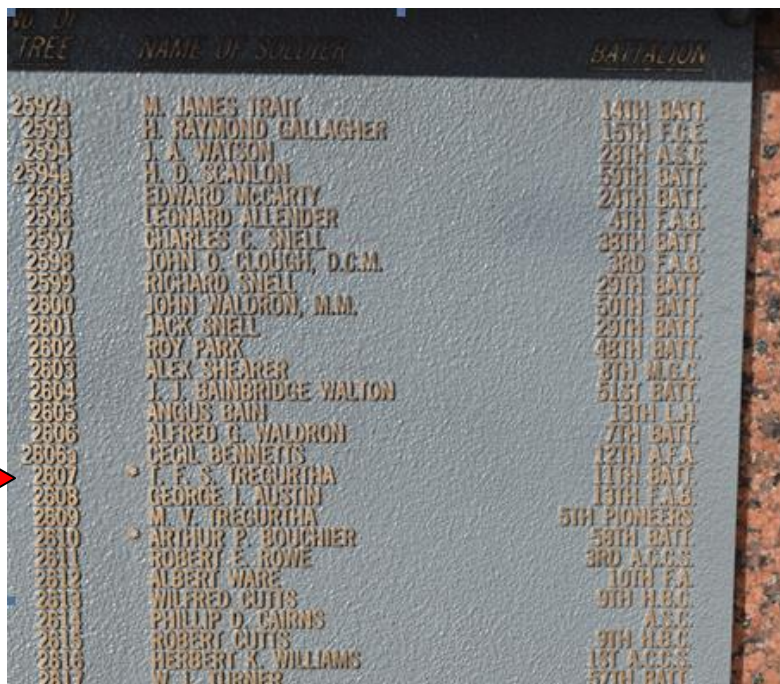 NO. OF
TREE NAME OF SOLDIER BATTALION
2592a M. JAMES TRAIT 14TH BATT.
2593 H. RAYMOND GALLAGHER 15TH F.C.E.
2594 J. A. WATSON 28TH A.S.C.
2594a H. D. SCANLON 59TH BATT.
2595 EDWARD McCARTY 24TH BATT.
2596 LEONARD ALLENDER 4TH F.A.B.
2597 CHARLES C. SNELL 38TH BATT.
2598 JOHN O. CLOUGH, D.C.M. 3RD F.A.B.
2599 RICHARD SNELL 29TH BATT.
2600 JOHN WALDRON, M.M. 50TH BATT.
2601 JACK SNELL 29TH BATT.
2602 ROY PARK 48TH BATT.
2603 ALEX SHEARER 8TH M.G.C.
2604 J. J. BAINBRIDGE WALTON 51ST BATT.
2605 ANGUS BAIN 13TH L.H.
2606 ALFRED G. WALDRON 7TH BATT.
2606a CECIL BENNETTS 12TH A.F.A.
2607 * T. F. S. TREGURTHA 11TH BATT.
2608 GEORGE I. AUSTIN 13TH F.A.B.
2609 M. V. TREGURTHA 5TH PIONEERS
2610 * ARTHUR P. BOUCHIER 58TH BATT.
2611 ROBERT E. ROWE 3RD A.C.C.S.
2612 ALBERT WARE 10TH F.A.
2613 WILFRED CUTTS 9TH H.B.C.
2614 PHILLIP D. CAIRNS A.S.C.
2615 ROBERT CUTTS 9TH H.B.C.
2616 HERBERT K. WILLIAMS 1ST A.C.C.S.
2617 W. J. TURNER 57TH BATT.